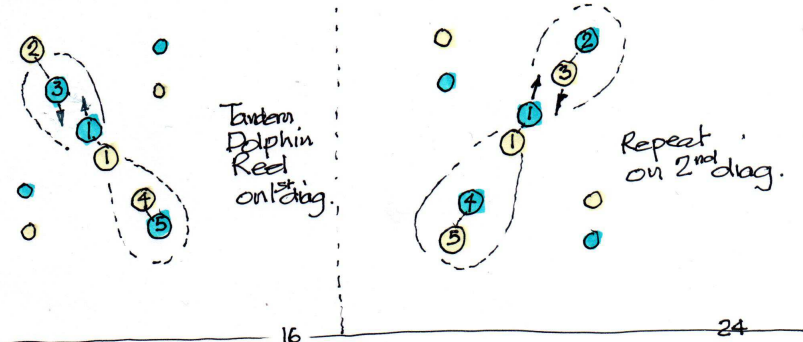 2
3
1
1
4
5
Tandem
Dolphin
Reel
on 1st diag.
16
2
3
1
1
4
5
Repeat
on 2nd diag.
24